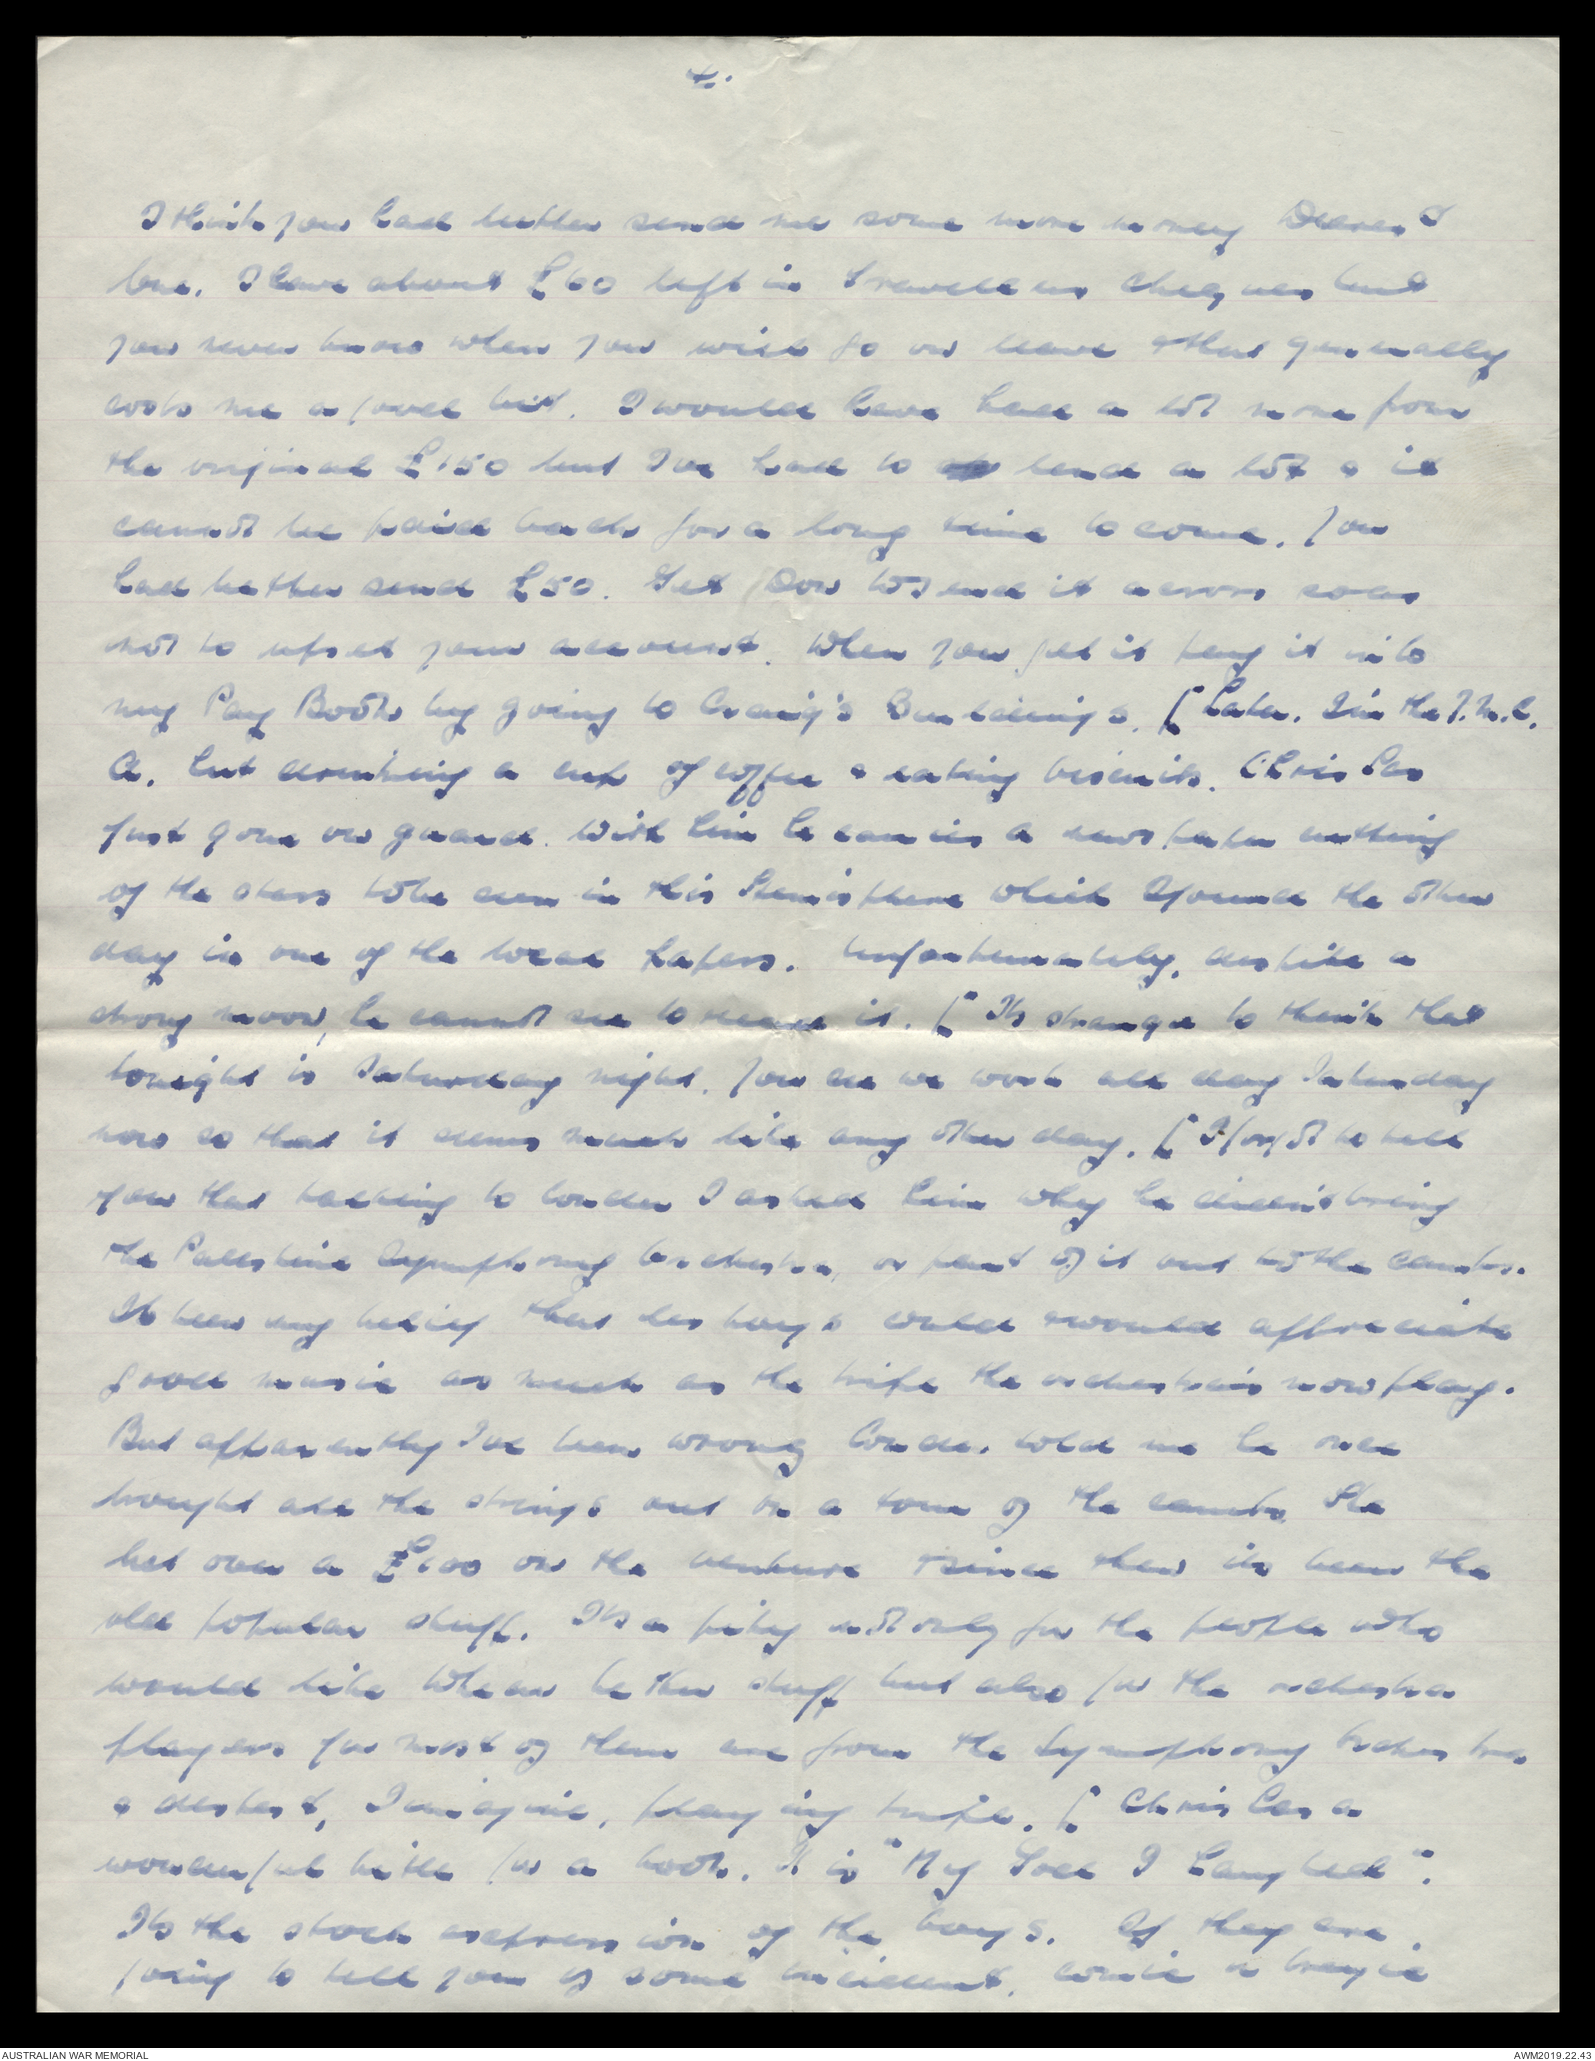 4.
I think you had better send me some more money Dearest
One. I have about £60 left in travellers cheques but
you never know when you will go on leave & that generally
costs me a good bit. I would have had a lot more from
the original £150 but I've had to lend a lot & it
cannot be paid back for a long time to come. You
had better send £50. Get Don to send it across so as
not to upset your account. When you get it pay it into
my Pay Book by going to Craig's Buildings. [Later. I'm in the Y.M.C.
A. hut drinking a cup of coffee & eating biscuits. Chris has
just gone on guard. With him he carries a newspaper cutting
of the stars to be seen in this Hemisphere which I found the other
day in one of the local papers. Unfortunately, despite a
strong moon, he cannot see to read it. [Its strange to think that
tonight is Saturday night. You see we work all day Saturday
now so that it seems much like any other day. [I forgot to tell
you that talking to Conder I asked him why he didn't bring
the Palestine Symphony Orchestra, or part of it out to the camps.
Its been my belief that les boys could & would appreciate
good music as much as the tripe the orchestras now play.
But apparently I've been wrong Conder told me he once
brought all the strings out on a tour of the camps. He
lost over a £100 on the venture & since then its been the
old popular stuff. Its a pity not only for the people who
would like to hear better stuff but also for the orchestra
players for most of them are from the Symphony Orchestra
& detest, I imagine, playing tripe. [Chris has a
wonderful title for a book. It is "My God I Laughed".
Its the stock expression of the boys. If they are
going to tell you of some incident, comic or tragic
AUSTRALIAN WAR MEMORIAL
AWM2019.22.43